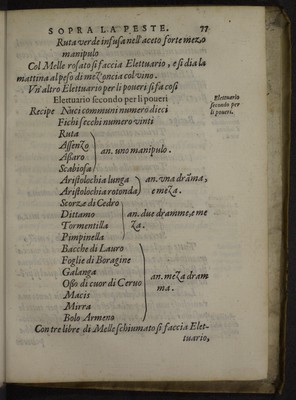 SOPRA LA PESTE. 77
Ruta verde infusa nell'aceto forte mezo
manipulo
Col Melle rosato si faccia Elettuario, e si dia la
mattina al peso di mezoncia col vino.
Vn'altro Elettuario per li poueri si fa così
Elettuario secondo per li poueri
Elettuario
secondo per
li poueri.
Recipe Nuci communi numero dieci
Fichi secchi numero vinti
Ruta
Assenzo
Asaro
Scabiosa
an. uno manipulo.
Aristolochia lunga
Aristolochia rotonda
an. vna dramma,
e meza.
Scorze di Cedro
Dittamo
Tormentilla
Pimpinella
an. due dramme, e me
za.
Bacche di Lauro
Foglie di Boragine
Galanga
Osso di cuor di Ceruo
Macis
Mirra
Bolo Armeno
an. meza dram
ma.
Con tre libre di Melle schiumato si faccia Elet-
tuario,